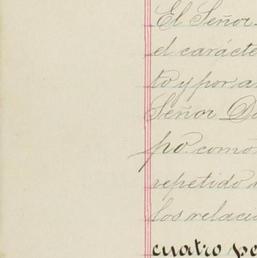 El Señor
el carácte
to y por a
Señor D
po como
repetido
los relaci
cuatro po